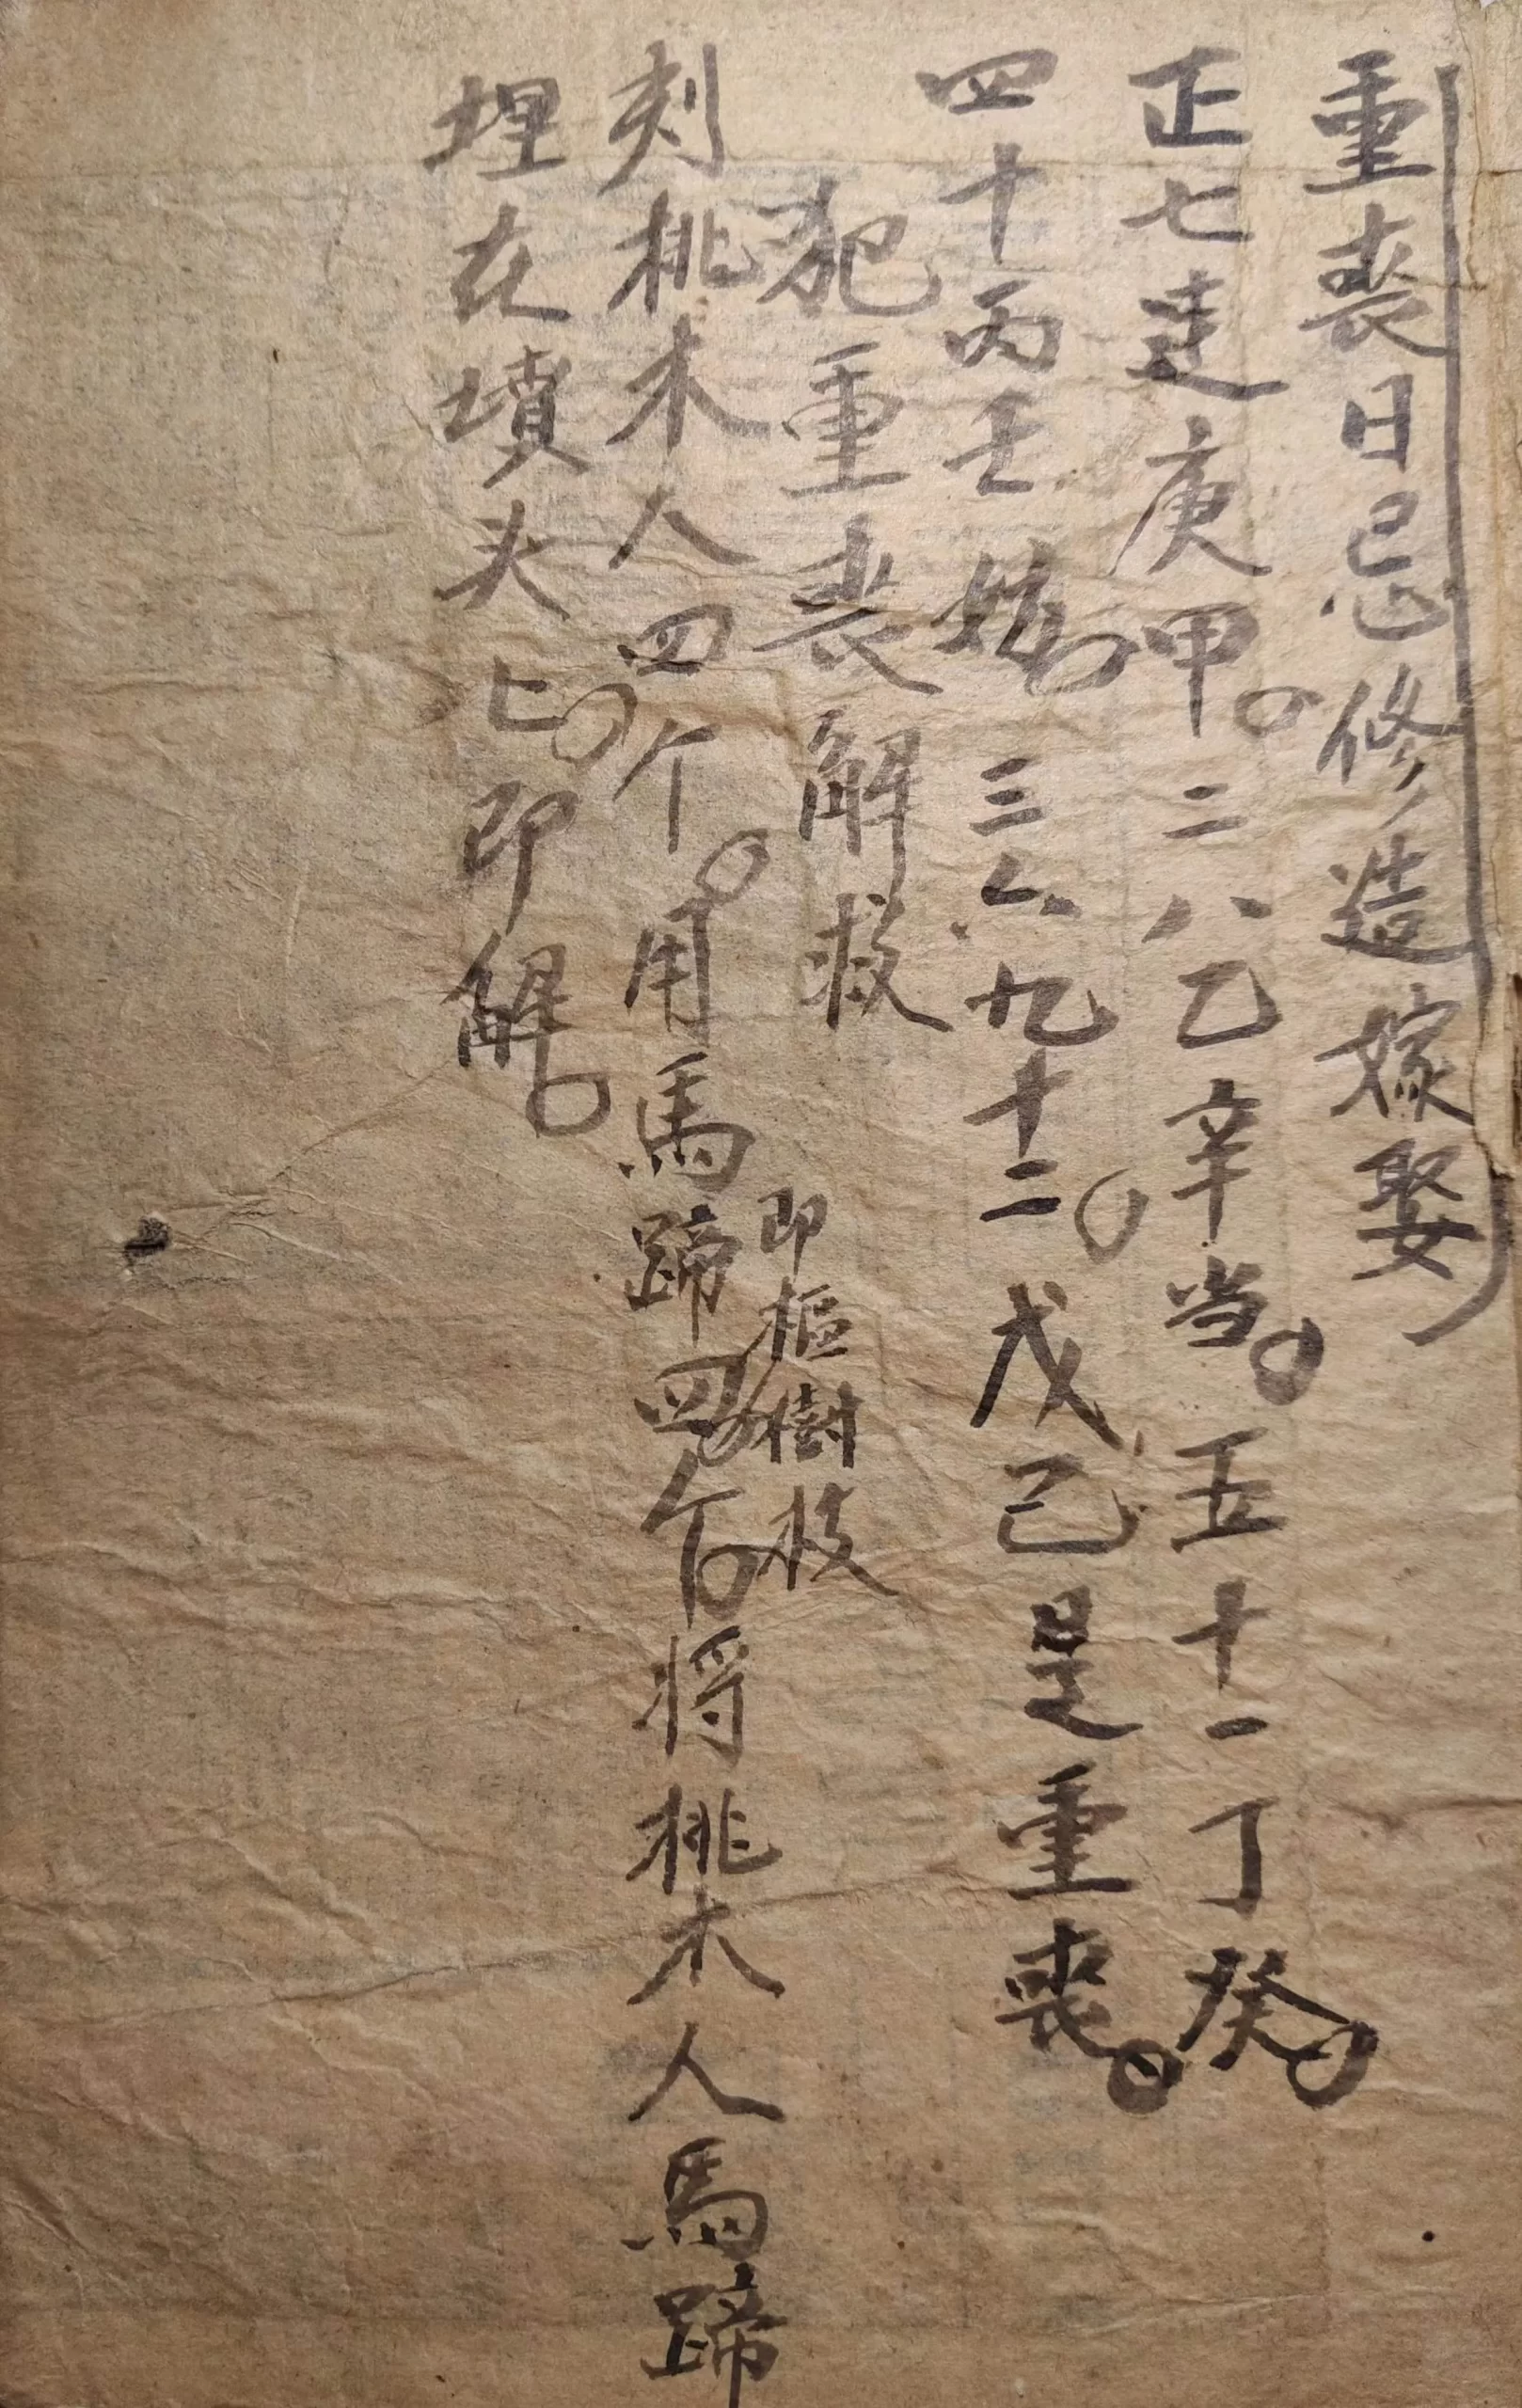 重丧日忌修造嫁娶
正七連庚甲。二八乙辛当。五十一丁癸。
四十丙壬妨。三六九十二。戊己是重丧。
犯重丧解救
刻桃木人四个。用馬蹄四个。将桃木人馬蹄
即樞樹枝
埋在墳头上。即解。